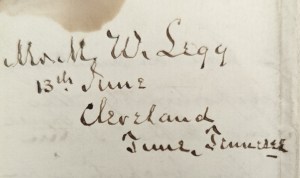 Mr. M. W. Legg
13th June
Cleveland
June, Tennessee